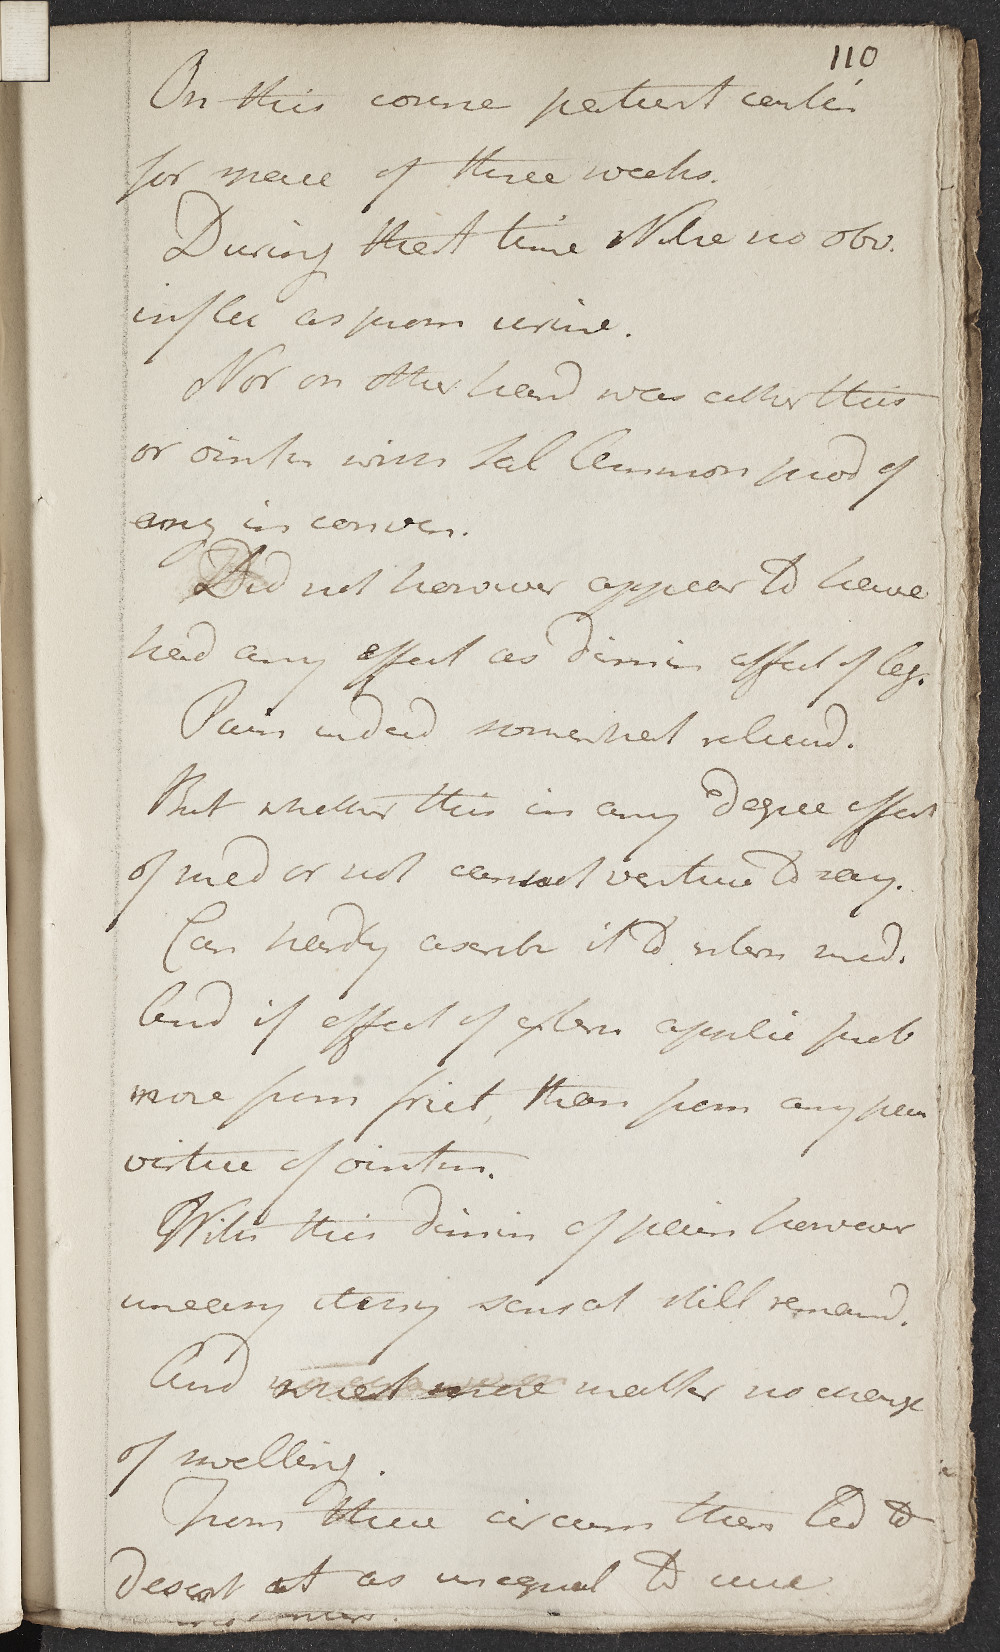 110
On this course patient contin
for space of three weeks.
During that time Nitre no obv.
influ as prom urine.
Nor on other hand was either this
or ointm with Sal Ammon prod of
any in conven.
Did not however appear to have
had any effect as dimin affect of leg.
Pain indeed somewhat relievd.
But whether this in any degree effect
of med or not cannot venture to say.
Can hardly ascribe it to intern med.
And if effect of extern applic prob
more from frict, than from any pecu
virtue of ointm.
With this dimin of pain however
uneasy itching sensat still remaind.
And what more matter no change
of swelling.
From these circum then led to
desert it as unequal to cure